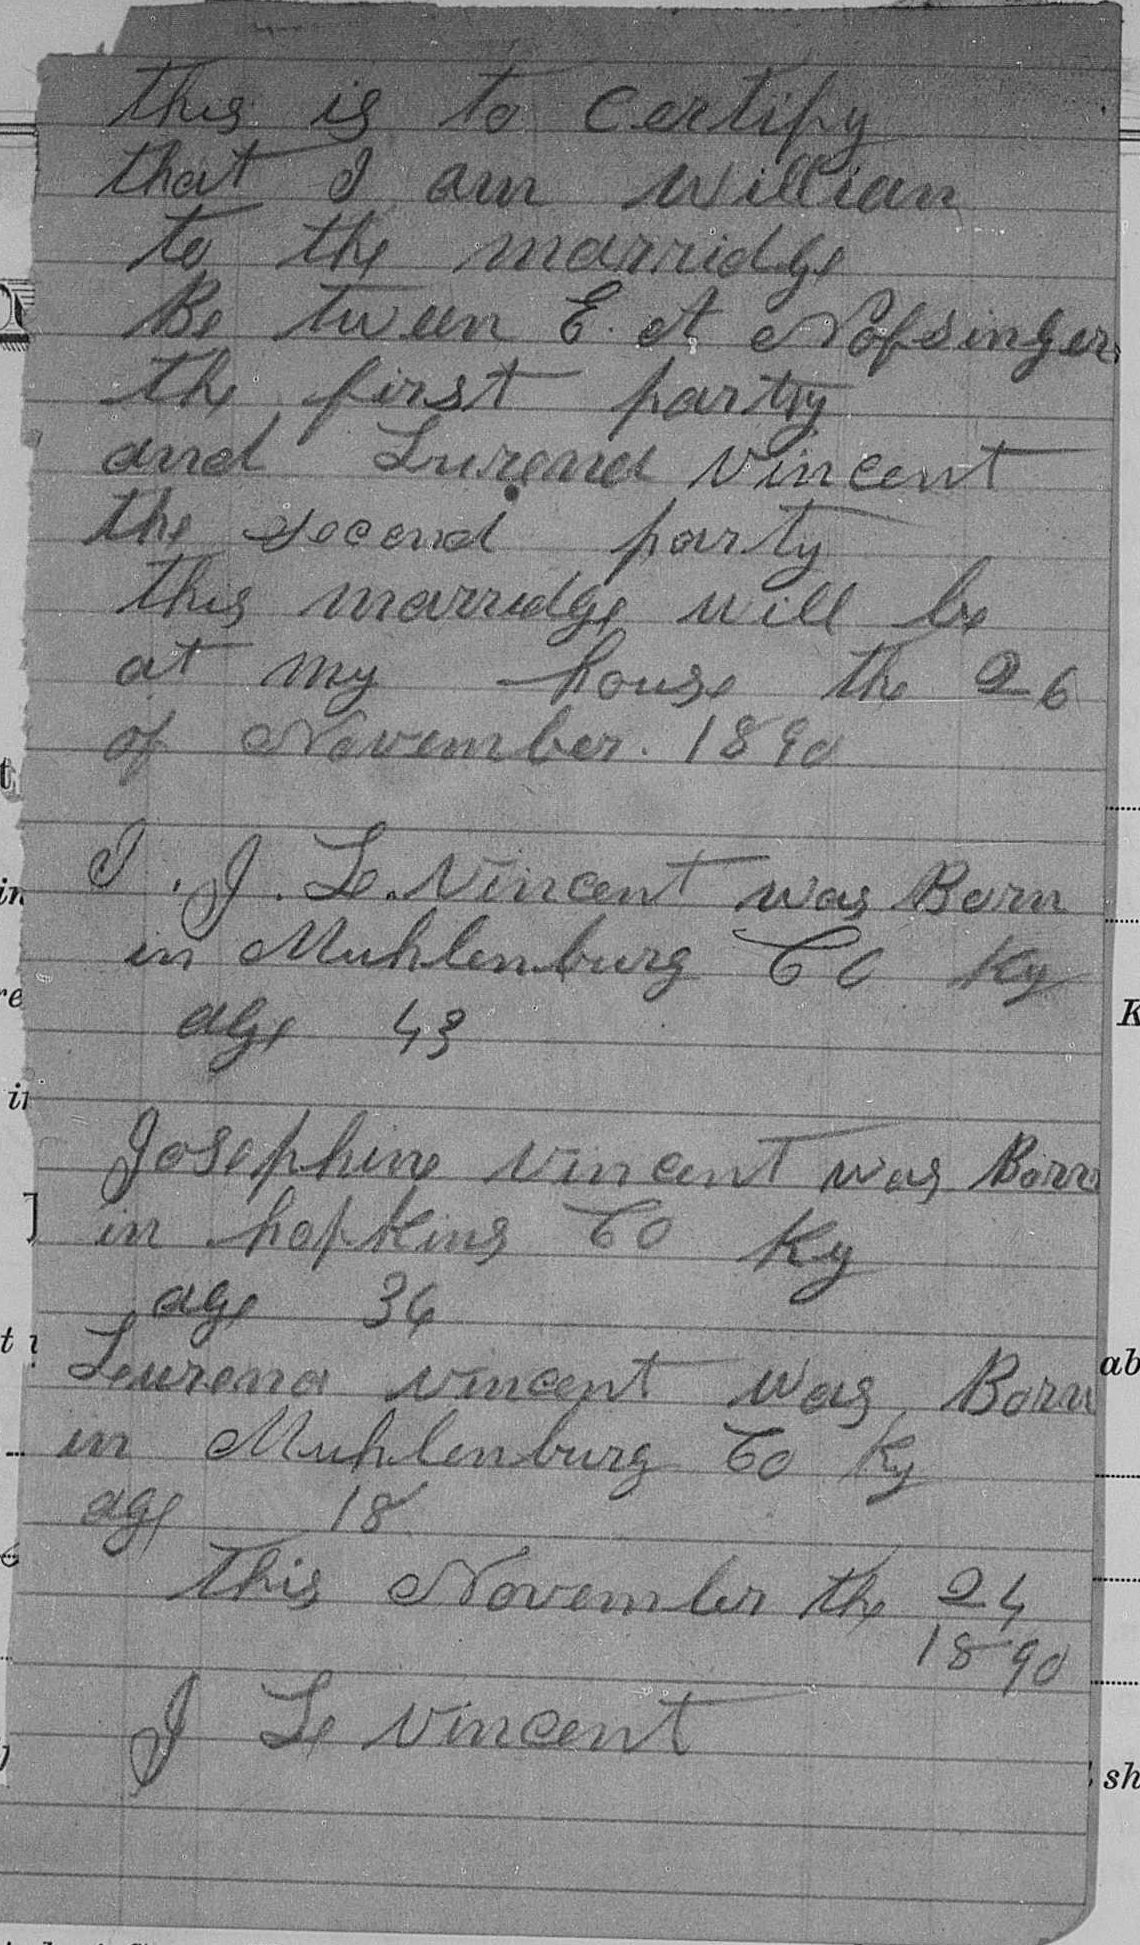 this is to certify
that I am willian
to the marridge
Be tween E. A Nofsinger
the first partry
and Lurena vincent
the second party
this marridge will be
at my house the 26
of November. 1890
I. J. Le. Vincent was Born
in Muhlenburg CO Ky
age 43
Josephine vincent was Born
in hopkins CO Ky
age 36
Leurena vincent was Born
in Muhlenburg CO Ky
age 18
this November the 24
1890
J Le vincent